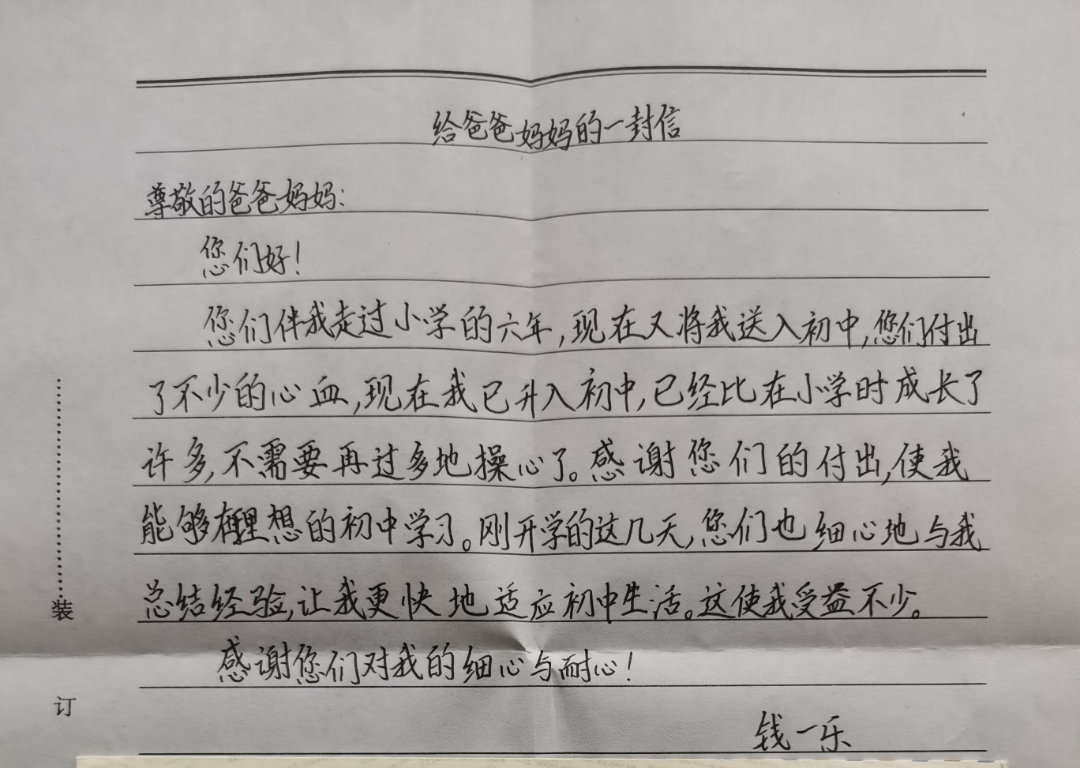 给爸爸妈妈的一封信
尊敬的爸爸妈妈:
您们好!
您们伴我走过小学的六年,现在又将我送入初中,您们付出
了不少的心血,现在我已升入初中,已经比在小学时成长了
许多,不需要再过多地操心了。感谢您们的付出,使我
能够在理想的初中学习。刚开学的这几天,您们也细心地与我
总结经验,让我更快地适应初中生活。这使我受益不少。
感谢您们对我的细心与耐心!
钱一乐
装
订